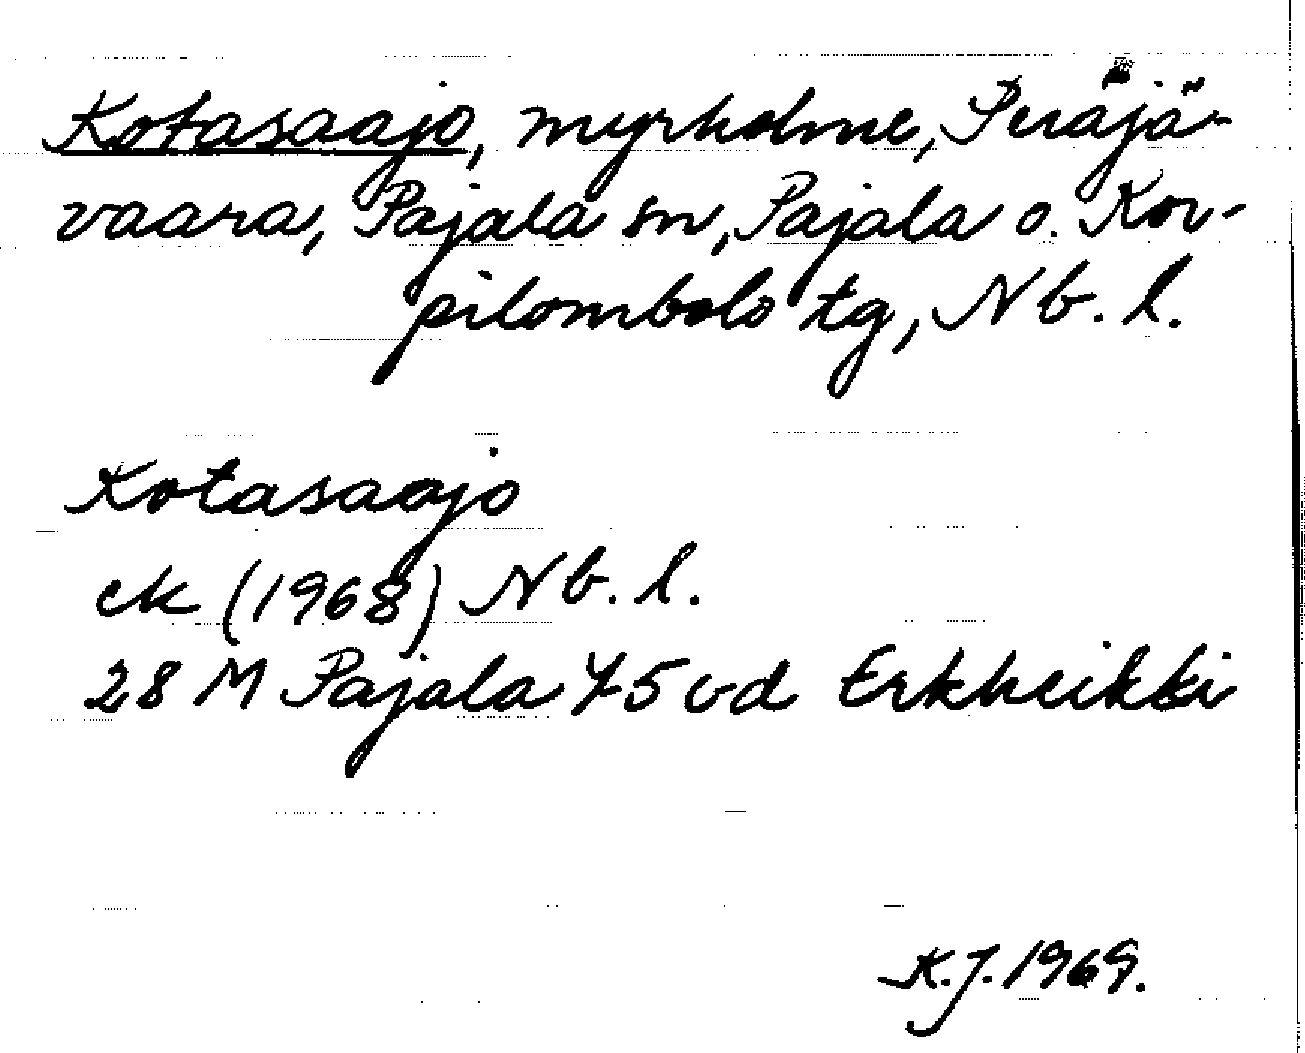 Kotasaajo, myrholme, Peräjä-
vaara, Pajala sn, Pajala o. Kor-
pilombolo tg, Nb. l.
Kotasaajo
ek (1968) Nb. l.
28 M Pajala 75 vd Erkheikki
K.J. 1969.